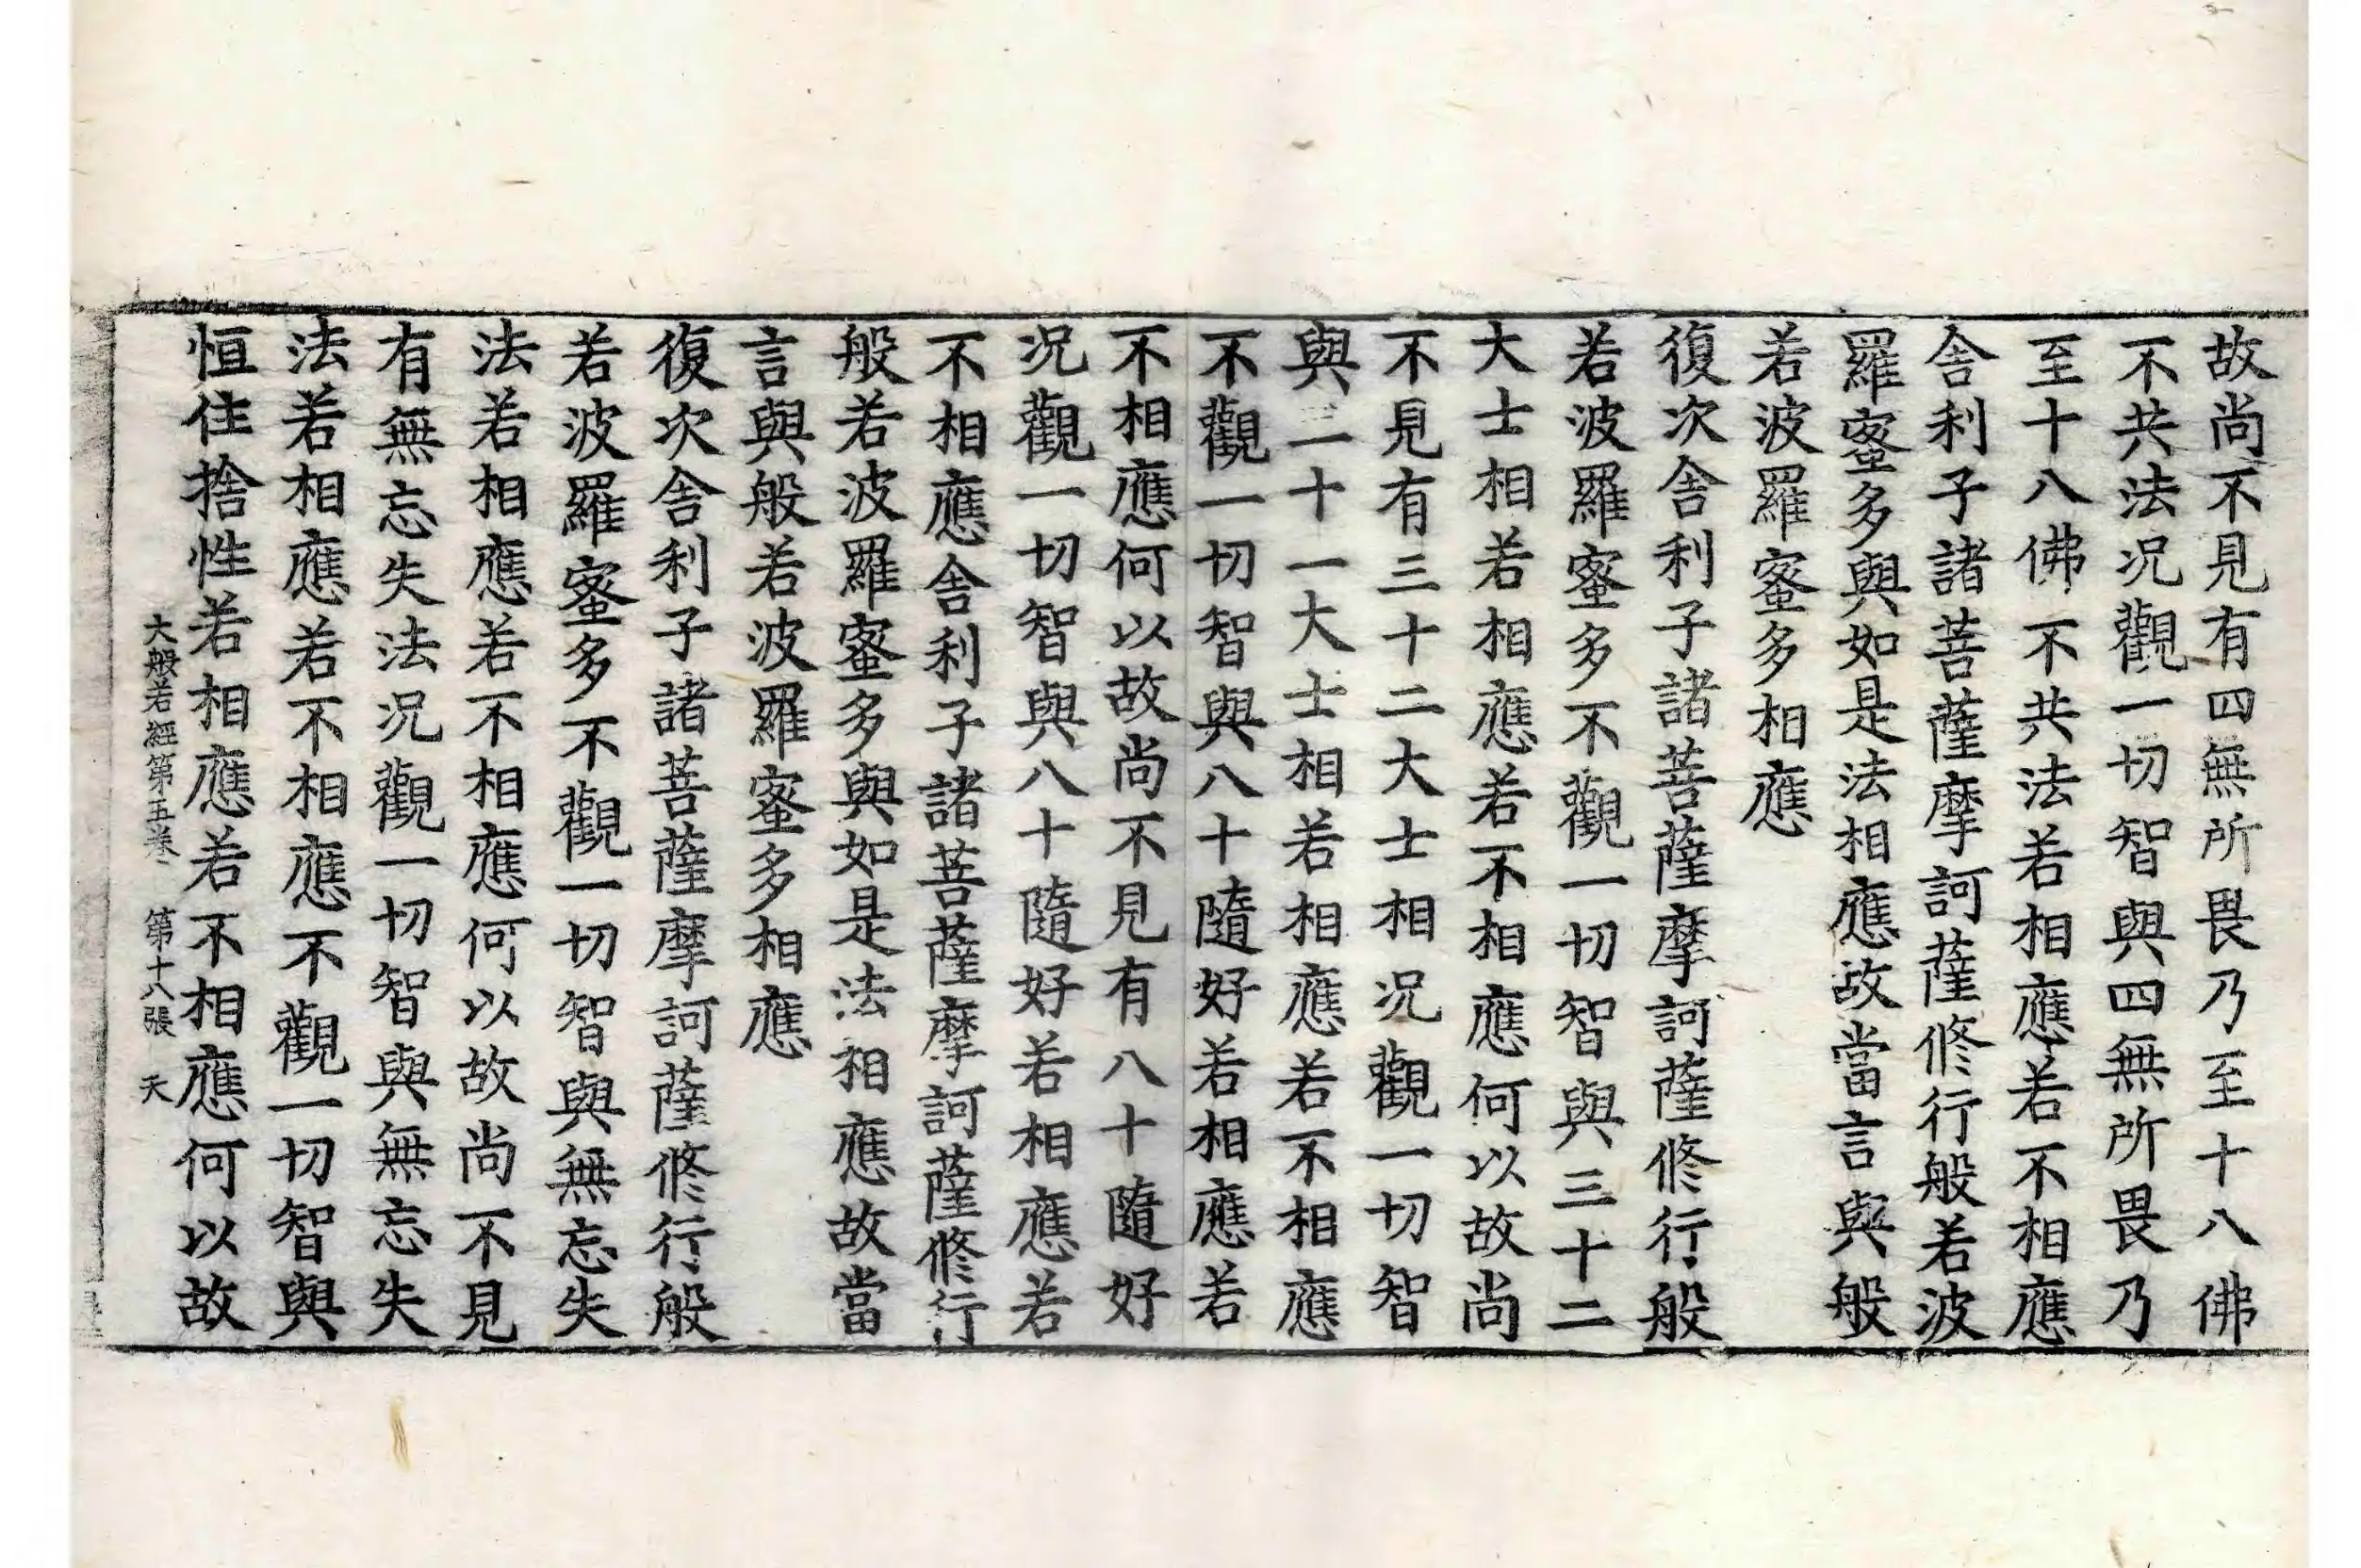 故尚不見有四無所畏乃至十八佛
不共法况觀一切智與四無所畏乃
至十八佛不共法若相應若不相應
舍利子諸菩薩摩訶薩修行般若波
羅蜜多與如是法相應故當言與般
若波羅蜜多相應
復次舍利子諸菩薩摩訶薩修行般
若波羅蜜多不觀一切智與三十二
大士相若相應若不相應何以故尚
不見有三十二大士相况觀一切智
與二十一大士相若相應若不相應
不觀一切智與八十隨好若相應若
不相應何以故尚不見有八十隨好
况觀一切智與八十隨好若相應若
不相應舍利子諸菩薩摩訶薩修行
般若波羅蜜多與如是法相應故當
言與般若波羅蜜多相應
復次舍利子諸菩薩摩訶薩修行般
若波羅蜜多不觀一切智與無忘失
法若相應若不相應何以故尚不見
有無忘失法况觀一切智與無忘失
法若相應若不相應不觀一切智與
恒住捨性若相應若不相應何以故
大般若經第五卷 第十八張 天